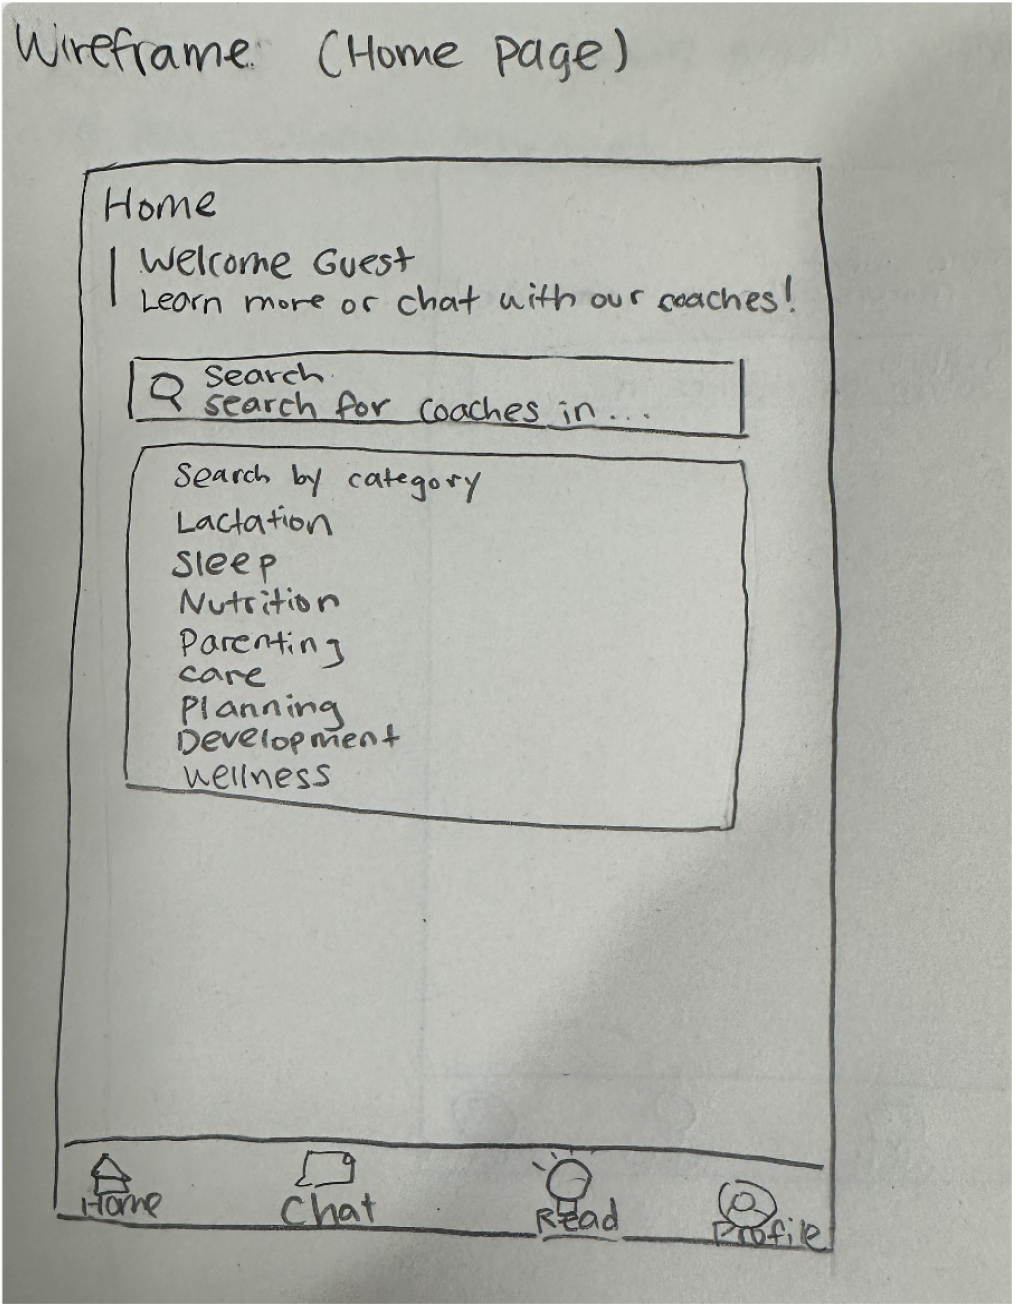 Wireframe: (Home page)
Home
Welcome Guest
Learn more or chat with our coaches!
Search
search for coaches in...
Search by category
Lactation
Sleep
Nutrition
Parenting
care
Planning
Development
wellness
Home
Chat
Read
Profile